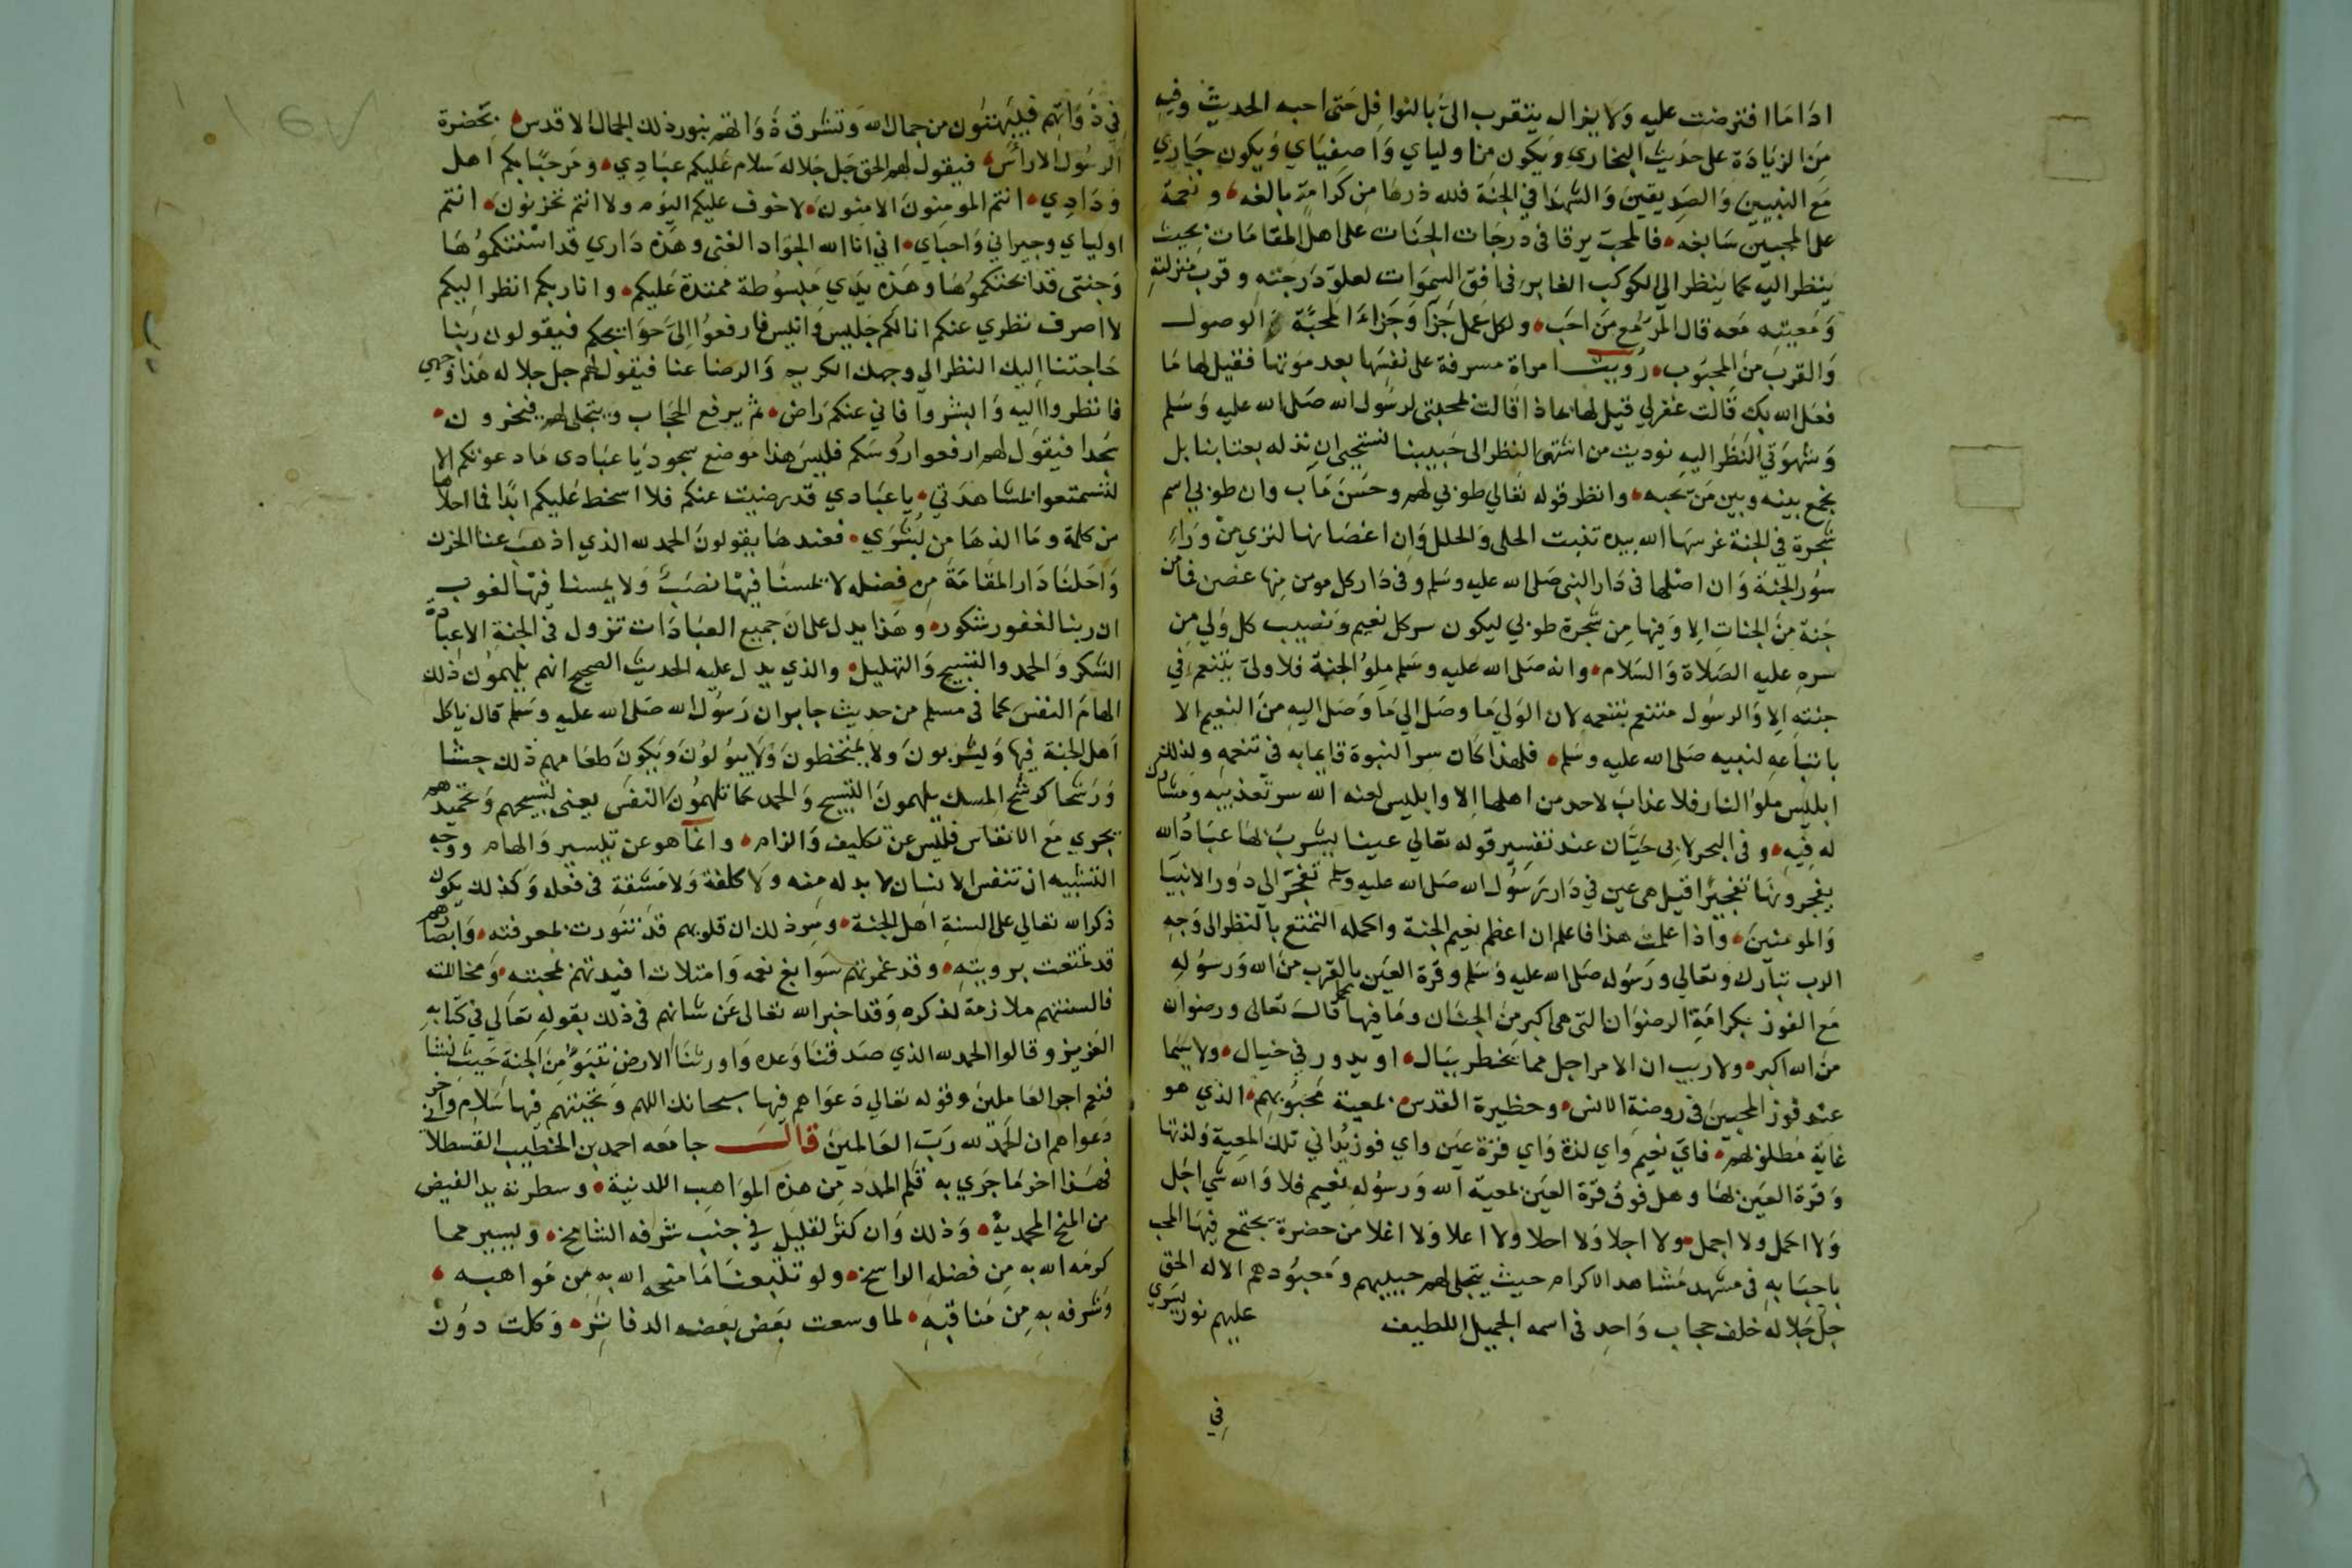 ادا ما افترضت عليه ولا يزال يتقرب الي بالنوافل حتى احبه الحديث وفيه
من الزيادة على حديث البخاري ويكون من اولياي واصفياي ويكون جاري
مع النبيين والصديقين والشهدا في الجنة فلله درها من كرامة بالغه ونعمة
على المحبين سابغه فالمحب يرقا في درجات الجنات على اهل المقامات بحيث
ينظر اليه كما ينظر الي الكوكب الغابر في افق السموات لعلو درجته وقرب منزلته
ومعيته معه قال المرء مع من احب ولكل عمل جزآ وجزاء المحبة الوصول
والقرب من المحبوب رؤيت امراة مسرفة على نفسها بعد موتها فقيل لها ما
فعل الله بك قالت غفر لي قيل لها بماذا قالت بمحبتي لرسول الله صلى الله عليه وسلم
وشهوتي النظر اليه نوديت من اشتهى النظر الى حبيبنا نستحيي ان نذله بعتابنا بل
نجمع بينه وبين من يحبه وانظر قوله تعالي طوبي لهم وحسن مآب وان طوبي اسم
شجرة في الجنة غرسها الله بيده تنبت الحلى والحلل وان اغصانها لترى من وراء
سور الجنة وان اصلها في دار النبي صلى الله عليه وسلم وفي دار كل مومن منها غصن فما من
جنة من الجنات الا وفيها من شجرة طوبي ليكون سر كل نعيم ونصيب كل ولي من
سره عليه الصلاة والسلام وانه صلى الله عليه وسلم ملؤ الجنة فلا ولي يتنعم في
جنته الا والرسول متنعم بتنعمه لان الولي ما وصل الي ما وصل اليه من النعيم الا
باتباعه لنبيه صلى الله عليه وسلم فلهذا كان سر النبوة قايما به في تنعمه وكذلك
ابليس ملؤ النار فلا عذاب لاحد من اهلها الا وابليس لعنه الله سر تعذيبه ومشارك
له فيه وفي البحر لابي حيان عند تفسير قوله تعالي عينا يشرب بها عباد الله
يفجرونها تفجيرا قيل هي عين في دار رسول الله صلى الله عليه وسلم تفجر الي دور الانبيا
والمومنين واذا علمت هذا فاعلم ان اعظم نعيم الجنة واكمله التمتع بالنظر الى وجه
الرب تبارك وتعالي ورسوله صلى الله عليه وسلم وقرة العين بالقرب من الله ورسوله
مع الفوز بكرامة الرضوان التي هي اكبر من الجنان وما فيها كما قال تعالى ورضوان
من الله اكبر ولا ريب ان الامر اجل مما يخطر ببال او يدور في خيال ولا سيما
عند فوز المحبين في روضة الانس وحظيرة القدس بمعية محبوبهم الذي هو
غاية مطلوبهم فاي نعيم واي لذة واي قرة عين واي فوز يداني تلك المعية ولذتها
وقرة العين بها وهل فوق قرة العين بمعية الله ورسوله نعيم فلا والله شي اجل
ولا اكمل ولا اجمل ولا اجلا ولا احلا ولا اعلا ولا اغلا من حضرة يجتمع فيها المحب
باحبابه في مشهد مشاهد الاكرام حيث يتجلى لهم حبيبهم ومعبودهم الاله الحق
جل جلاله خلف حجاب واحد في اسمه الجميل اللطيف عليهم نور يسري
في
في ذواتهم فيبهتون من جمال الله وتشرق ذواتهم بنور ذلك الجمال الاقدس بحضرة
الرسول الاراس فيقول لهم الحق جل جلاله سلام عليكم عبادي ومرحبا بكم اهل
ودادي انتم المومنون الامنون لا خوف عليكم اليوم ولا انتم تحزنون انتم
اولياي وجيراني واحباي اني انا الله الجواد الغني وهذه داري قد اسكنتكموها
وجنتي قد ابحتكموها وهذه يدي مبسوطة ممتدة عليكم وانا ربكم انظر اليكم
لا اصرف نظري عنكم انا لكم جليس وانيس فارفعوا الي حوايجكم فيقولون ربنا
حاجتنا اليك النظر الي وجهك الكريم والرضا عنا فيقول لهم جل جلاله هذا وجهي
فانظروا اليه وابشروا فاني عنكم راض ثم يرفع الحجاب ويتجلى لهم فيخرون
سجدا فيقول لهم ارفعوا روسكم فليس هذا موضع سجود يا عبادي ما دعوتكم الا
لتتمتعوا بمشاهدتي يا عبادي قد رضيت عنكم فلا اسخط عليكم ابدا فما احلاها
من كلمة وما الذها من بشرى فعندها يقولون الحمد لله الذي اذهب عنا الحزن
واحلنا دار المقامة من فضله لا يمسنا فيها نصب ولا يمسنا فيها لغوب
ان ربنا لغفور شكور وهذا يدل على ان جميع العبادات تزول في الجنة الا عبادة
الشكر والحمد والتسبيح والتهليل والذي يدل عليه الحديث الصحيح انهم يلهمون ذلك
الهام النفس كما في مسلم من حديث جابر ان رسول الله صلى الله عليه وسلم قال ياكل
اهل الجنة فيها ويشربون ولا يمتخطون ولا يبولون ويكون طعامهم ذلك جشا
ورشحا كرشح المسك يلهمون التسبيح والحمد كما تلهمون النفس يعني تسبيحهم وتحميدهم
يجري مع الانفاس فليس عن تكليف والزام وانما هو عن تيسير والهام ووجه
التشبيه ان تنفس الانسان لا بد له منه ولا كلفة ولا مشقة في فعله وكذلك يكون
ذكر الله تعالي على السنة اهل الجنة وسر ذلك ان قلوبهم قد تنورت بمعرفته وابصارهم
قد تمتعت برويته وقد غمرتهم سوابغ نعمه وامتلات افيدتهم بمحبته ومخاللته
فالسنتهم ملازمة لذكره وقد اخبر الله تعالى عن شانهم في ذلك بقوله تعالي في كتابه
العزيز وقالوا الحمد لله الذي صدقنا وعده واورثنا الارض نتبوؤ من الجنة حيث نشا
فنعم اجر العاملين وقوله تعالي دعواهم فيها سبحانك اللهم وتحيتهم فيها سلام واخر
دعواهم ان الحمد لله رب العالمين قال جامعه احمد بن الخطيب القسطلاني
فهذا اخر ما جري به قلم المدد من هذه المواهب اللدنية وسطرته يد الفيض
من المنح المحمدية وذلك وان كثر لقليل في جنب شرفه الشامخ ويسير مما
كرمه الله به من فضله الراسخ ولو تتبعنا ما منحه الله به من مواهبه
وشرفه به من مناقبه لما وسعت بعض بعضه الدفاتر وكلت دون